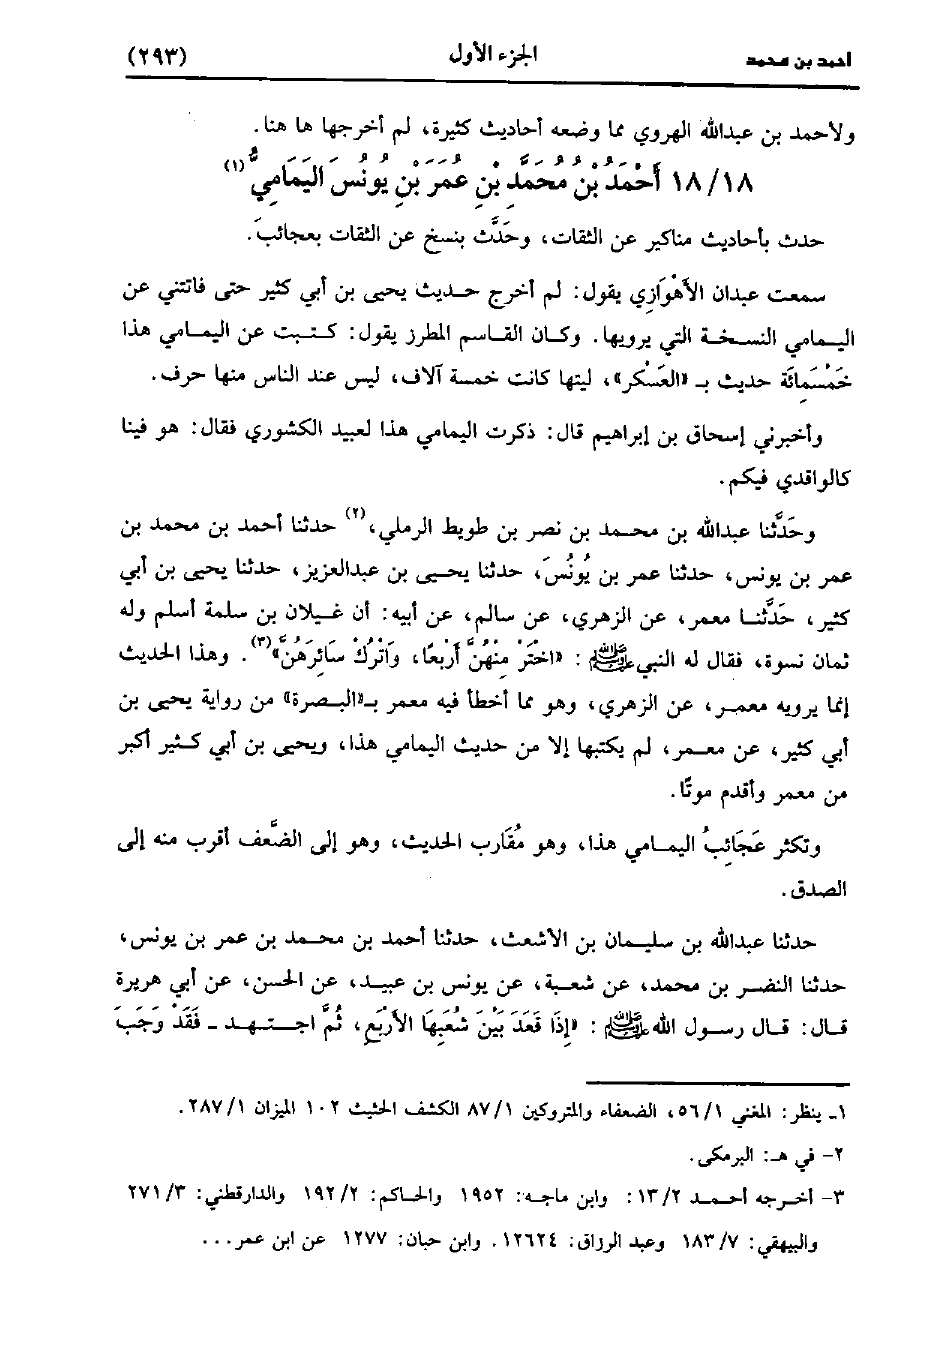 أحمد بن محمد الجزء الأول (٢٩٣)
ولأحمد بن عبدالله الهروي مما وضعه أحاديث كثيرة، لم أخرجها ها هنا.
١٨/١٨ أَحْمَدُ بْنُ مُحَمَّدِ بنِ عُمَرَ بنِ يُونُسَ اليَمَامِيُّ(١)
حدث بأحاديث مناكير عن الثقات، وحَدَّث بنسخ عن الثقات بعجائبَ.
سمعت عبدان الأهْوَازِي يقول: لم أخرج حديث يحيى بن أبي كثير حتى فاتتني عن
اليمامي النسخة التي يرويها. وكان القاسم المطرز يقول: كتبت عن اليمامي هذا
خَمْسَمِائَة حديث بـ «العَسْكر»، ليتها كانت خمسة آلاف، ليس عند الناس منها حرف.
وأخبرني إسحاق بن إبراهيم قال: ذكرت اليمامي هذا لعبيد الكشوري فقال: هو فينا
كالواقدي فيكم.
وحَدَّثنا عبدالله بن محمد بن نصر بن طويط الرملي،(٢) حدثنا أحمد بن محمد بن
عمر بن يونس، حدثنا عمر بن يُونُسَ، حدثنا يحيى بن عبدالعزيز، حدثنا يحيى بن أبي
كثير، حَدَّثنا معمر، عن الزهري، عن سالم، عن أبيه: أن غيلان بن سلمة أسلم وله
ثمان نسوة، فقال له النبي ﷺ: «اخْتَرْ مِنْهُنَّ أَرْبعًا، وَاتْرُكْ سَائِرَهُنَّ»(٣). وهذا الحديث
إنما يرويه معمر، عن الزهري، وهو مما أخطأ فيه معمر بـ«البصرة» من رواية يحيى بن
أبي كثير، عن معمر، لم يكتبها إلا من حديث اليمامي هذا، ويحيى بن أبي كثير أكبر
من معمر وأقدم موتًا.
وتكثر عَجَائِبُ اليمامي هذا، وهو مُقَارب الحديث، وهو إلى الضَّعف أقرب منه إلى
الصدق.
حدثنا عبدالله بن سليمان بن الأشعث، حدثنا أحمد بن محمد بن عمر بن يونس،
حدثنا النضر بن محمد، عن شعبة، عن يونس بن عبيد، عن الحسن، عن أبي هريرة
قال: قال رسول الله ﷺ: «إِذَا قَعَدَ بَيْنَ شُعَبِهَا الأرْبَعِ، ثُمَّ اجتهد ـ فَقَدْ وَجَبَ
١ـ ينظر: المغني ٥٦/١، الضعفاء والمتروكين ٨٧/١ الكشف الحثيث ١٠٢ الميزان ٢٨٧/١.
٢- في هـ: البرمكى.
٣- أخرجه أحمد ١٣/٢: وابن ماجه: ١٩٥٢ والحاكم: ١٩٢/٢ والدارقطني: ٢٧١/٣
والبيهقي: ١٨٣/٧ وعبد الرزاق: ١٢٦٢٤. وابن حبان: ١٢٧٧ عن ابن عمر...